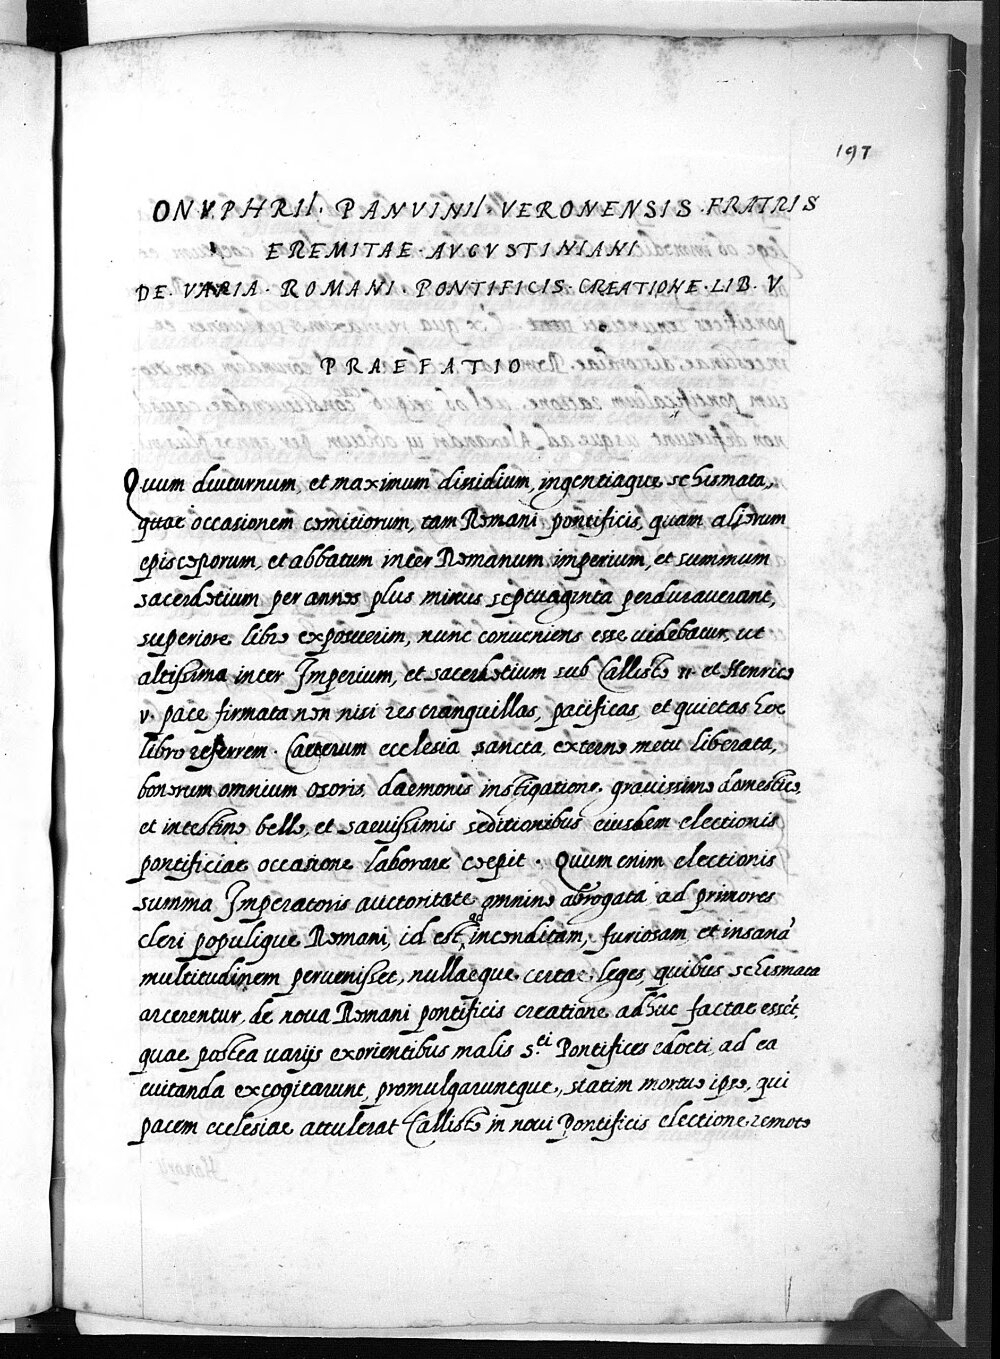 197
ONVPHRII. PANVINII. VERONENSIS. FRATRIS
EREMITAE. AVGVSTINIANI
DE. VARIA. ROMANI. PONTIFICIS. CREATIONE. LIB. V
PRAEFATIO
Quum diuturnum, et maximum dissidium, ingentiaque schismata,
quae occasionem comitiorum, tam Romani pontificis, quam aliorum
episcoporum, et abbatum inter Romanum imperium, et summum
sacerdotium per annos plus minus septuaginta perdurauerant,
superiore libro exposuerim, nunc conueniens esse uidebatur, ut
altissima inter Imperium, et sacerdotium sub Callisto II. et Henrico
V. pace firmata non nisi res tranquillas, pacificas, et quietas hoc
libro referrem. Caeterum ecclesia sancta, externo metu liberata,
bonorum omnium osoris daemonis instigatione, grauissimo domestico,
et intestino bello, et saeuissimis seditionibus eiusdem electionis
pontificiae occasione laborare coepit. Quum enim electionis
summa Imperatoris auctoritate omnino abrogata ad primores
cleri populique Romani, id est, ad inconditam, furiosam et insanā
multitudinem peruenisset, nullaeque certae leges, quibus schismata
arcerentur, de noua Romani pontificis creatione adhuc factae essēt,
quae postea uarijs exorientibus malis s.ti Pontifices edocti, ad ea
euitanda excogitarunt, promulgaruntque, statim mortuo ipso, qui
pacem ecclesiae attulerat Callisto in noui Pontificis electione remoto